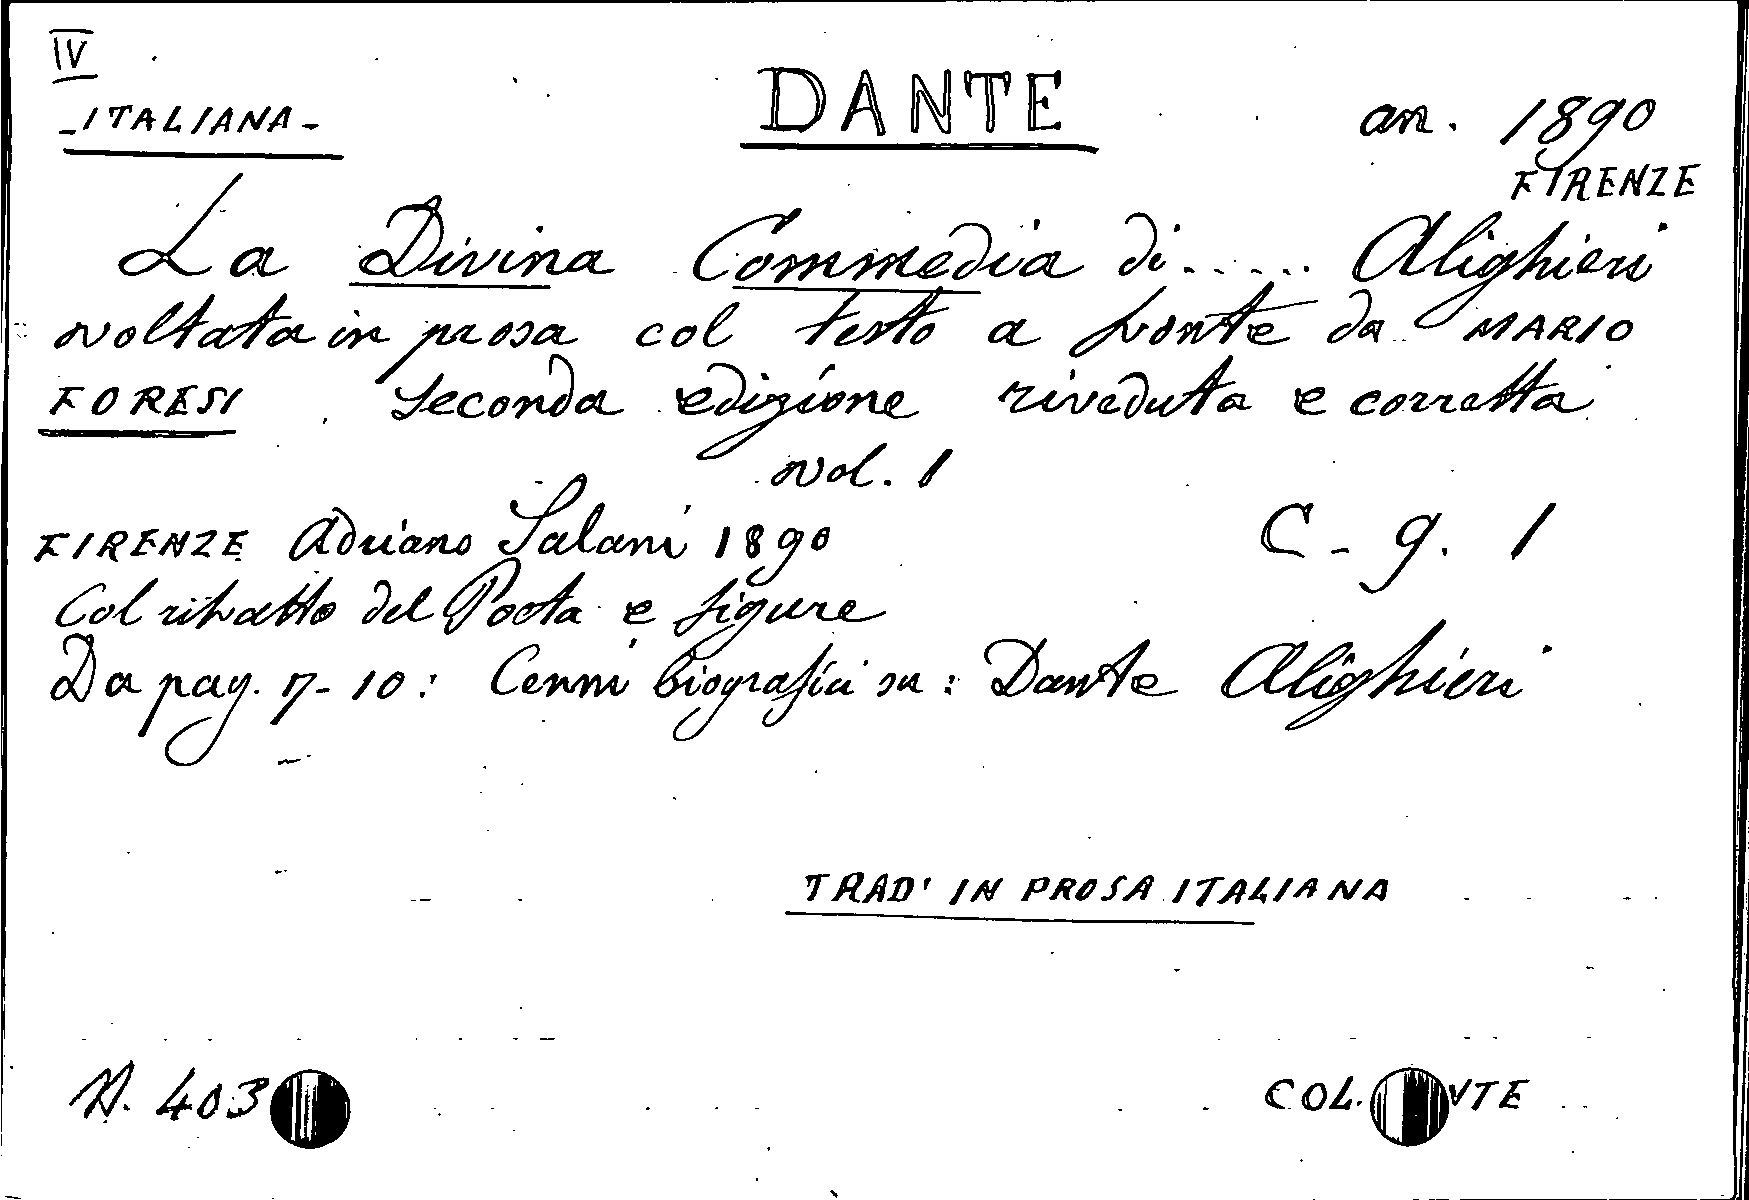 IV
- ITALIANA - DANTE an. 1890
FIRENZE
La Divina Commedia di..... Alighieri
voltata in prosa col testo a fronte da MARIO
FORESI Seconda edizione riveduta e corretta
vol. 1
FIRENZE Adriano Salani 1890 C - g. 1
Col ritratto del Poeta e figure
Da pag. 7-10: Cenni biografici su: Dante Alighieri
TRAD' IN PROSA ITALIANA
N. 403 COL.